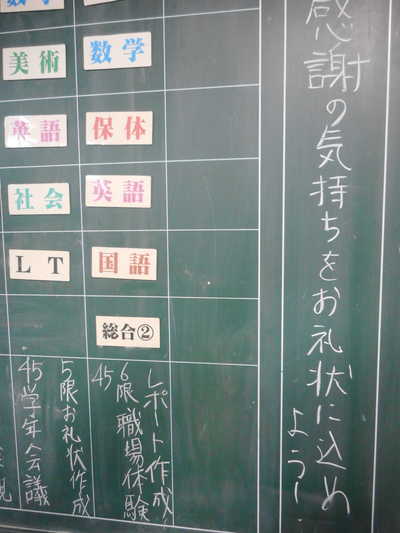 感謝の気持ちをお礼状に込め
よう!
数学
保体
英語
国語
総合②
レポート作成
6限職場体験
45
数学
美術
英語
社会
LT
5限お礼状作成
45学年会議